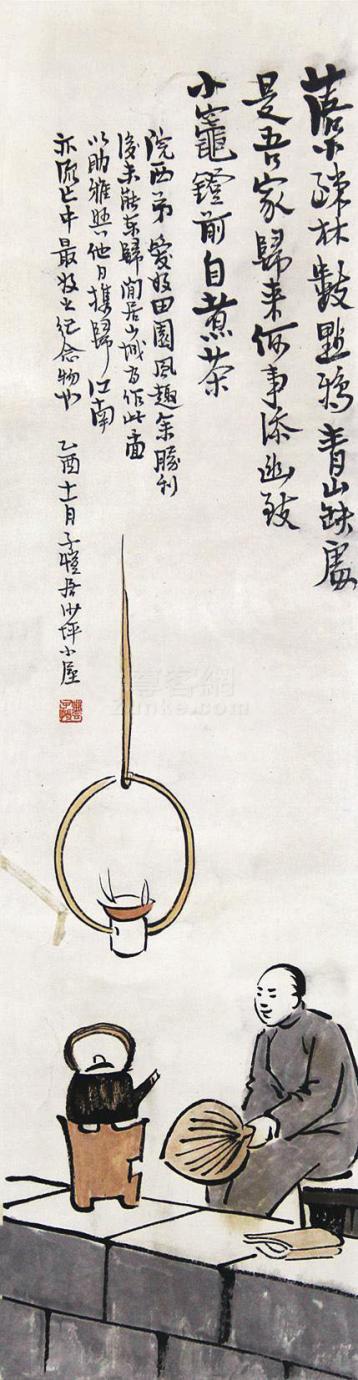 落木疎林數點鴉青山缺處
是吾家歸来何事添幽致
小竈鐙前自煮茶
院西弟愛好田園風趣余勝利
後未能東歸閒居山城為作此畫
以助雅興他日携歸江南
亦流亡中最好之紀念物也
乙酉十一月子愷居沙坪小屋
尊客網
Zunke.com